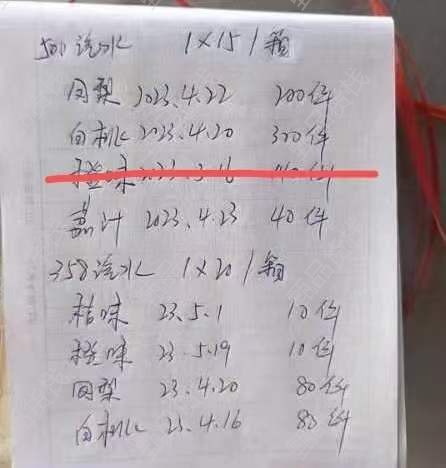 500汽水 1×15/箱
凤梨 2023.4.22 200件
白桃 2023.4.20 300件
橙味 2023.3.16
2023.4.23 40件
358汽水 1×20/箱
桔味 23.5.1 10件
橙味 23.5.19 10件
凤梨 23.4.20 80件
白桃 23.4.16 80件